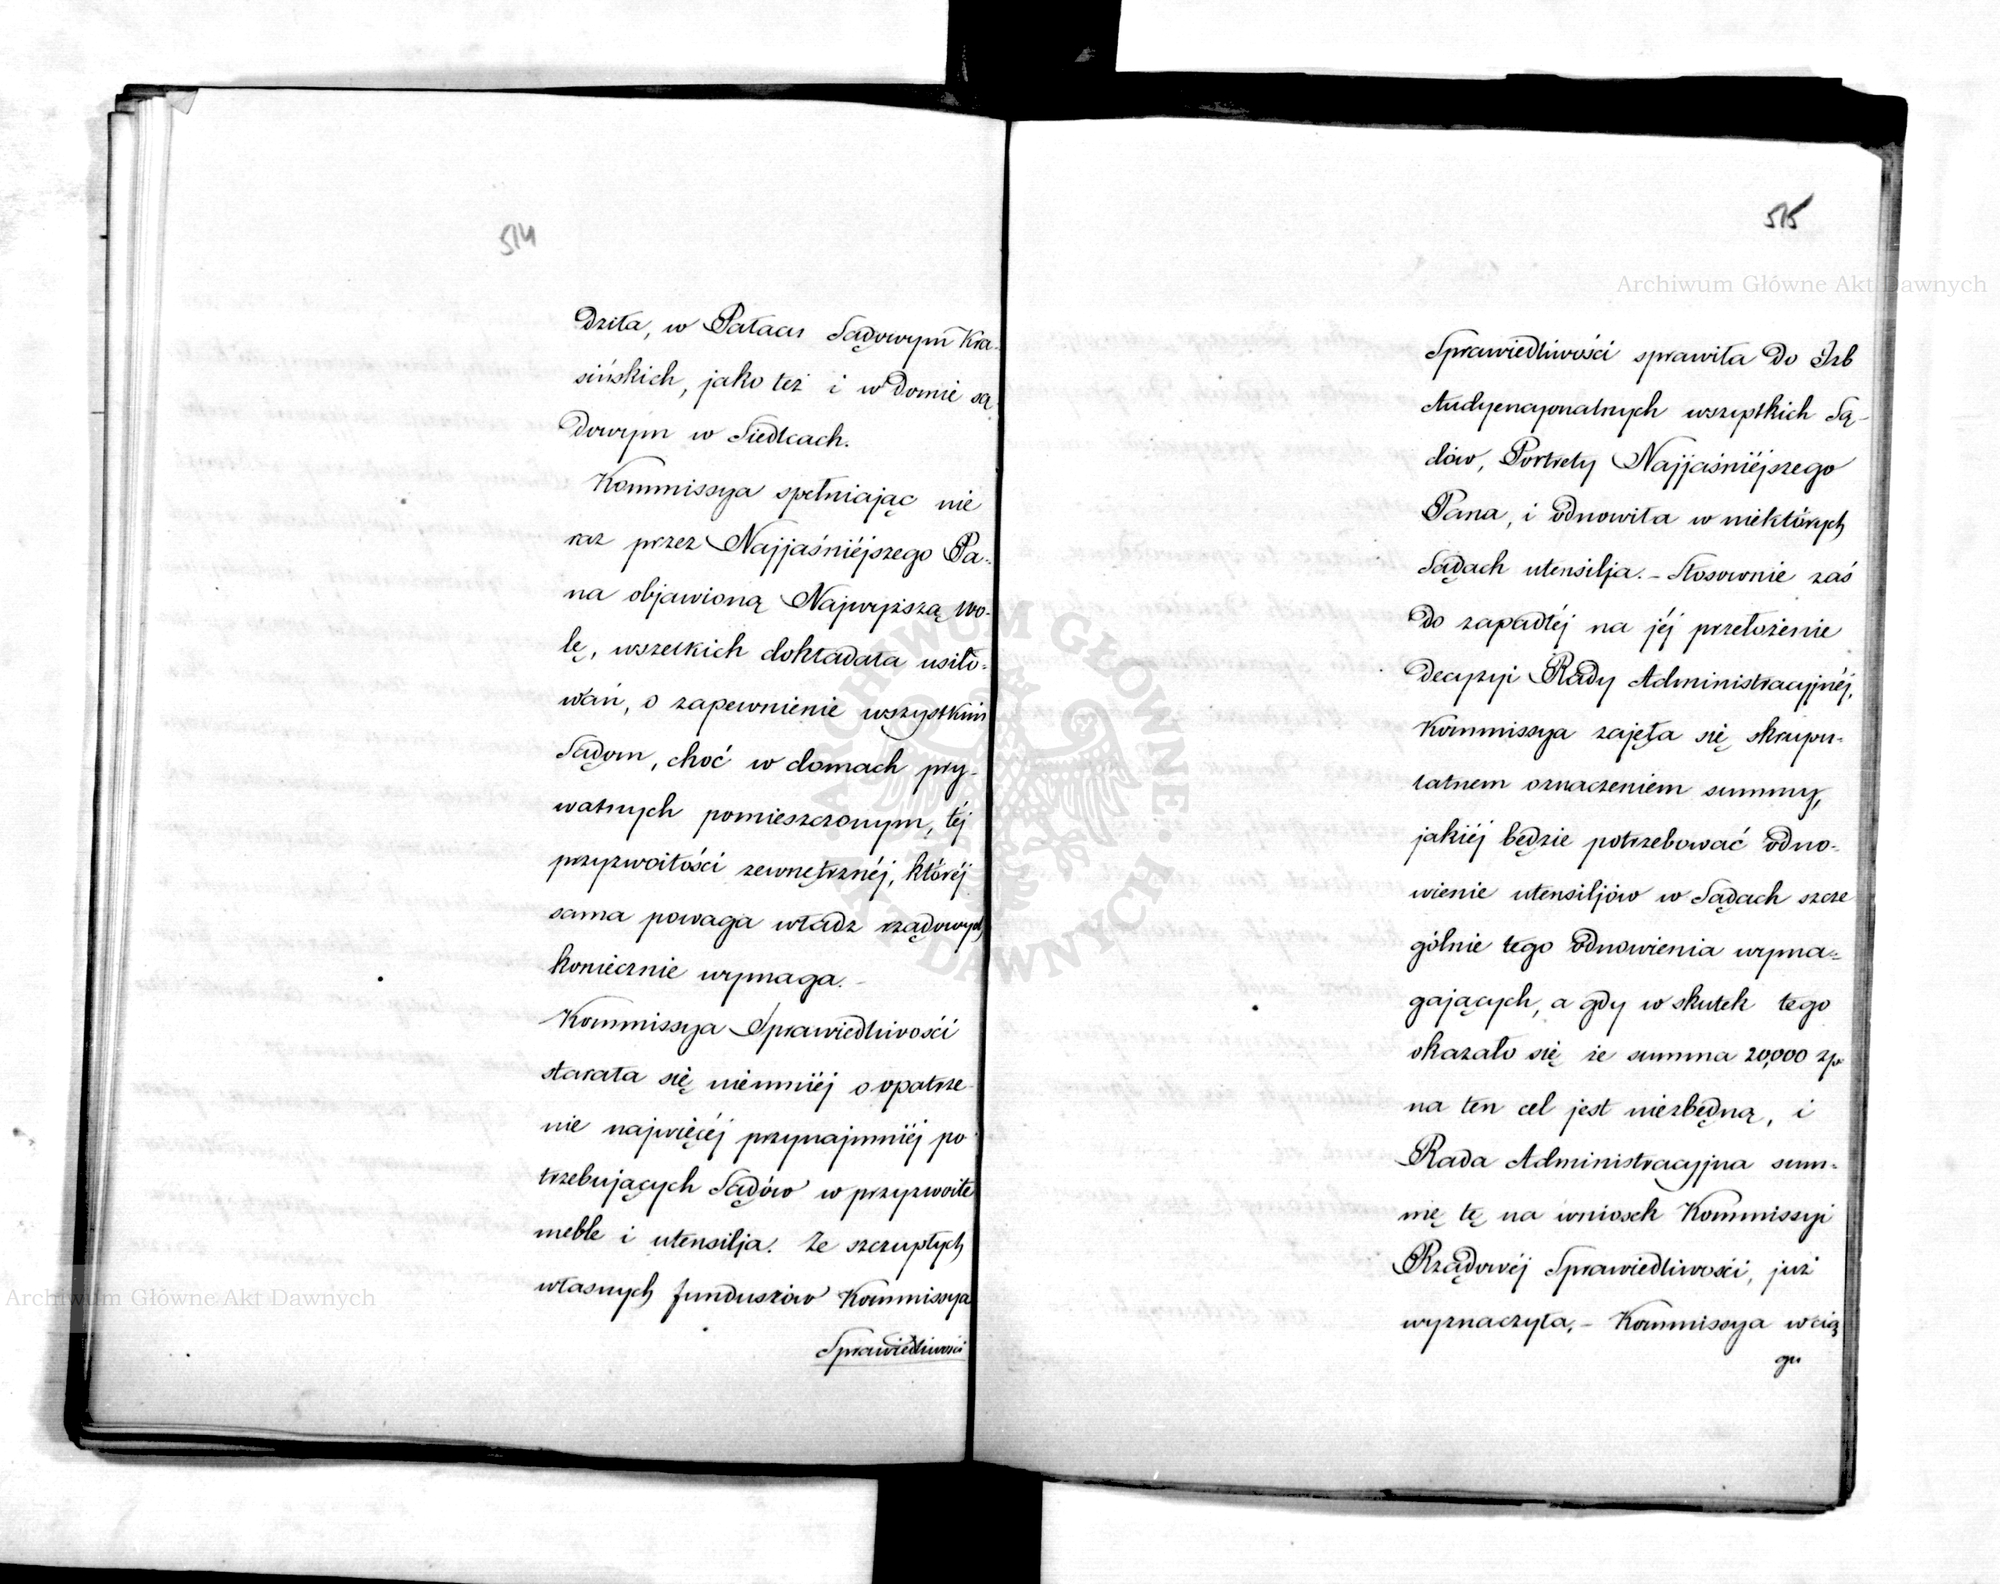 514
dziła, w Pałacu Sądowym Kra-
sińskich, jako też i w domie są
dowym w Siedlcach.
Kommissya spełniając nie
raz przez Najjaśniéjszego Pa-
na objawioną Najwyższą Wo-
lę, wszelkich dokładała usiło-
wań, o zapewnienie wszystkim
Sądom, choć w domach pry-
watnych pomieszczonym, téj
przyzwoitości zewnętrznéj, któréj
sama powaga władz rządowych
koniecznie wymaga. -
Kommissya Sprawiedliwości
starała się niemniéj o opatrze-
nie najwięcéj przynajmniéj po
trzebujących Sądów w przyzwoite
meble i utensilja. Ze szczupłych
własnych funduszów Kommissya
Sprawiedliwości
515
Sprawiedliwości sprawiła do Izb
Audyencyonalnych wszystkich Są-
dów, Portrety Najjaśniéjszego
Pana, i odnowiła w niektórych
Sądach utensilja. - Stosownie zaś
do zapadłéj na jéj przełożenie
decyzyi Rady Administracyjnéj,
Kommissya zajęła się skrupu-
latnem oznaczeniem summy,
jakiéj będzie potrzebować odno-
wienie utensiljów w Sądach szcze
gólnie tego odnowienia wyma-
gających, a gdy w skutek tego
okazało się że summa 20,000 zp.
na ten cel jest niezbędną, i
Rada Administracyjna sum-
mę tę na wniosek Kommissyi
Rządowéj Sprawiedliwości, już
wyznaczyła. - Kommissya w cią
gu
Archiwum Główne Akt Dawnych
Archiwum Główne Akt Dawnych
ARCHIWUM GŁÓWNE · AKT DAWNYCH ·